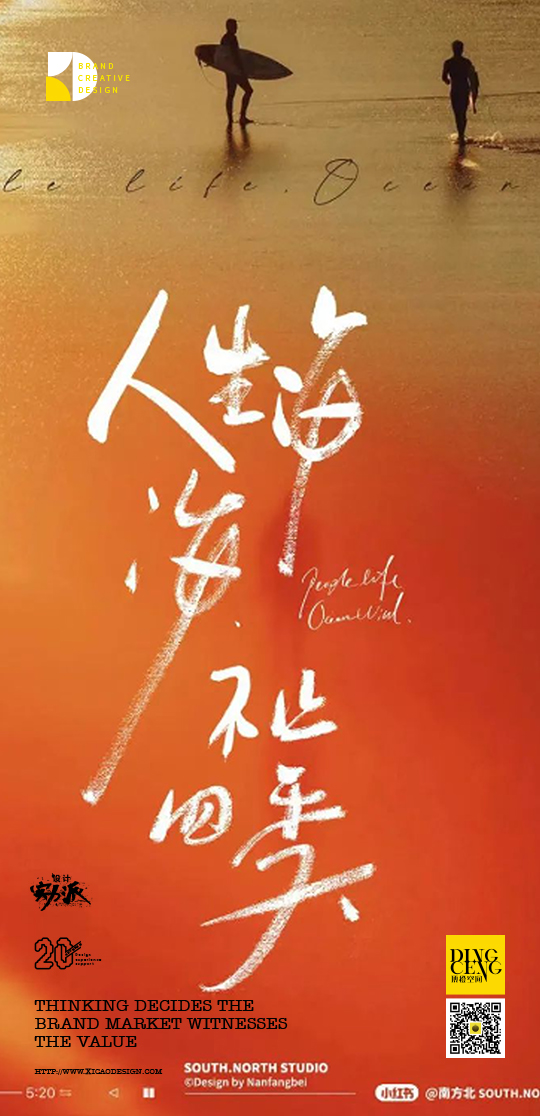 BRAND
CREATIVE
DESIGN
le life. Ocean
人生海海
People life
Ocean Wind.
设计
实力派
20
Design
experience
support
DING
CENG
THINKING DECIDES THE
BRAND MARKET WITNESSES
THE VALUE
HTTP://WWW.XICAODESIGN.COM
SOUTH.NORTH STUDIO
©Design by Nanfangbei
5:20
小红书 @南方北 SOUTH.NO